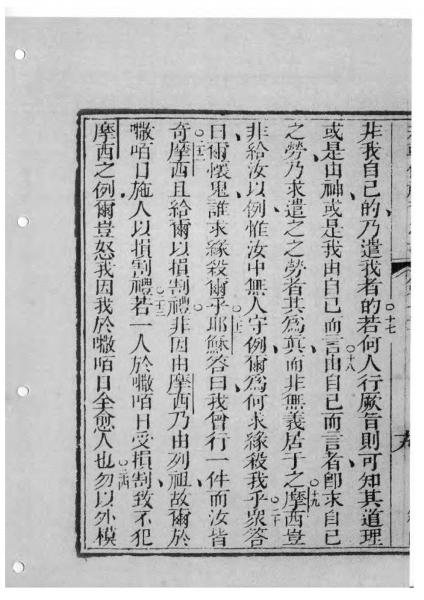 非我自己的乃遣我者的○十七若何人行厥旨則可知其道理
或是由神或是我由自己而言○十八由自己而言者卽求自己
之勞乃求遣之之勞者其爲眞而非無義居于之○十九摩西豈
非給汝以例惟汝中無人守例爾爲何求緣殺我乎○二十衆答
曰爾懷鬼誰求緣殺爾乎○二一耶穌答曰我曾行一件而汝皆
奇○二二摩西且給爾以損割禮非因由摩西乃由列祖故爾於
㘔咟日施人以損割禮○二三若一人於㘔咟日受損割致不犯
摩西之例爾豈怒我因我於㘔咟日全愈人也○二四勿以外模